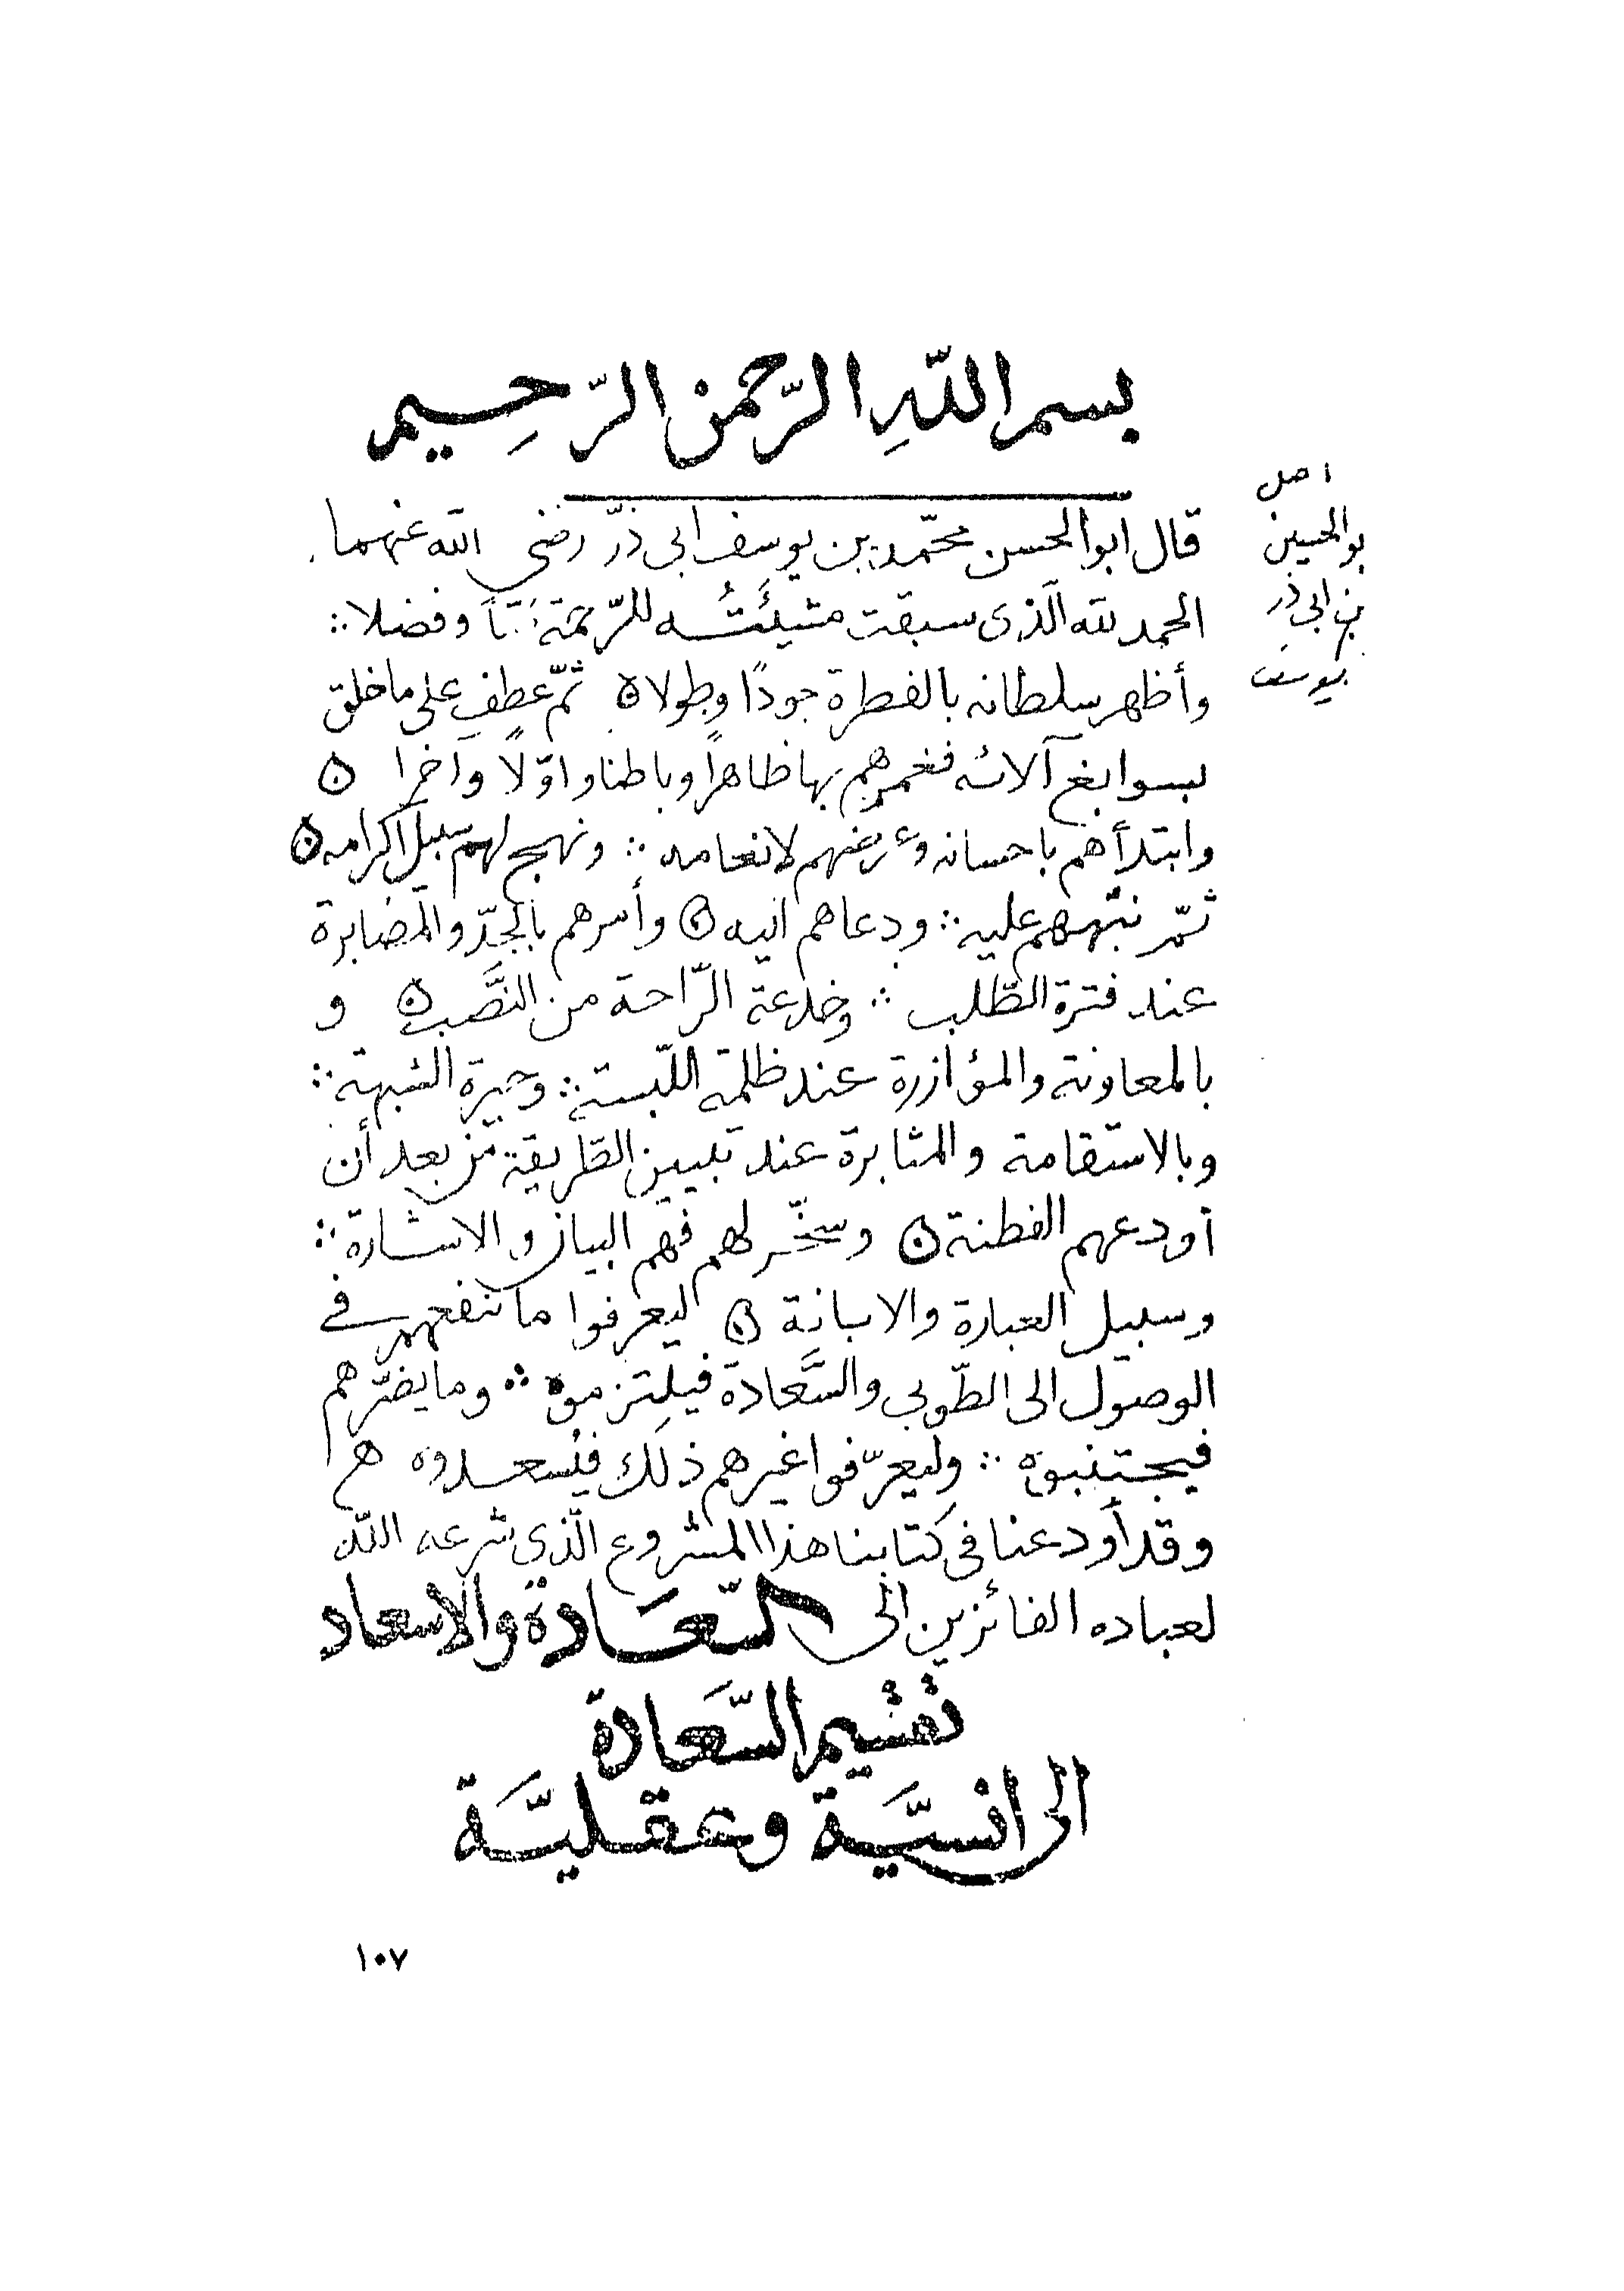 بسم اللّهِ الرّحمن الرّحِيم
اصل
بو الحسين
بن ابى ذر
يوسف
قال ابو الحسن محمّد بن يوسف ابى ذرّ رضى اللّه عنهما.
الحمد للّه الّذى سبقت مشيئَتُه للرّحمة مَنّاً وفضلا ؞
وأظهر سلطانه بالفطرة جودًا وطولا ۞ ثمّ عطف على ما خلق
بسوابغ آلائه فغمرهم بها ظاهراً وباطنا واوّلًا وآخرا ۞
وابتدأهم باحسانه وعرضهم لانعامه ؞ ونهج لهم سبيل اكرامه ۞
ثمّ نبّههم عليه ؞ ودعاهم اليه ۞ وأمرهم بالجدّ والمصابرة
عند فترة الطّلب ؞ وخدعة الرّاحة من النَّصب ۞ و
بالمعاونة والمؤازرة عند ظلمة اللّبسة ؞ وحيرة الشبهة ؞
وبالاستقامة والمثابرة عند تبيين الطّريقة من بعد أن
أودعهم الفطنة ۞ وسخّر لهم فهم البيان والاشارة ؞
وسبيل العبارة والابانة ۞ ليعرفوا ما ينفعهم فى
الوصول الى الطّوبى والسَّعادة فيلتزموه ؞ وما يضرّهم
فيجتنبوه ؞ وليعرّفوا غيرهم ذلك فيُسعدوه هم
وقد أودعنا فى كتابنا هذا المشروع الّذى شرعه اللّه
لعباده الفائزين الى السّعَادة والاسعاد
تقسيم السّعَادة
الى انسيَّة وعقليَّة
١٠٧